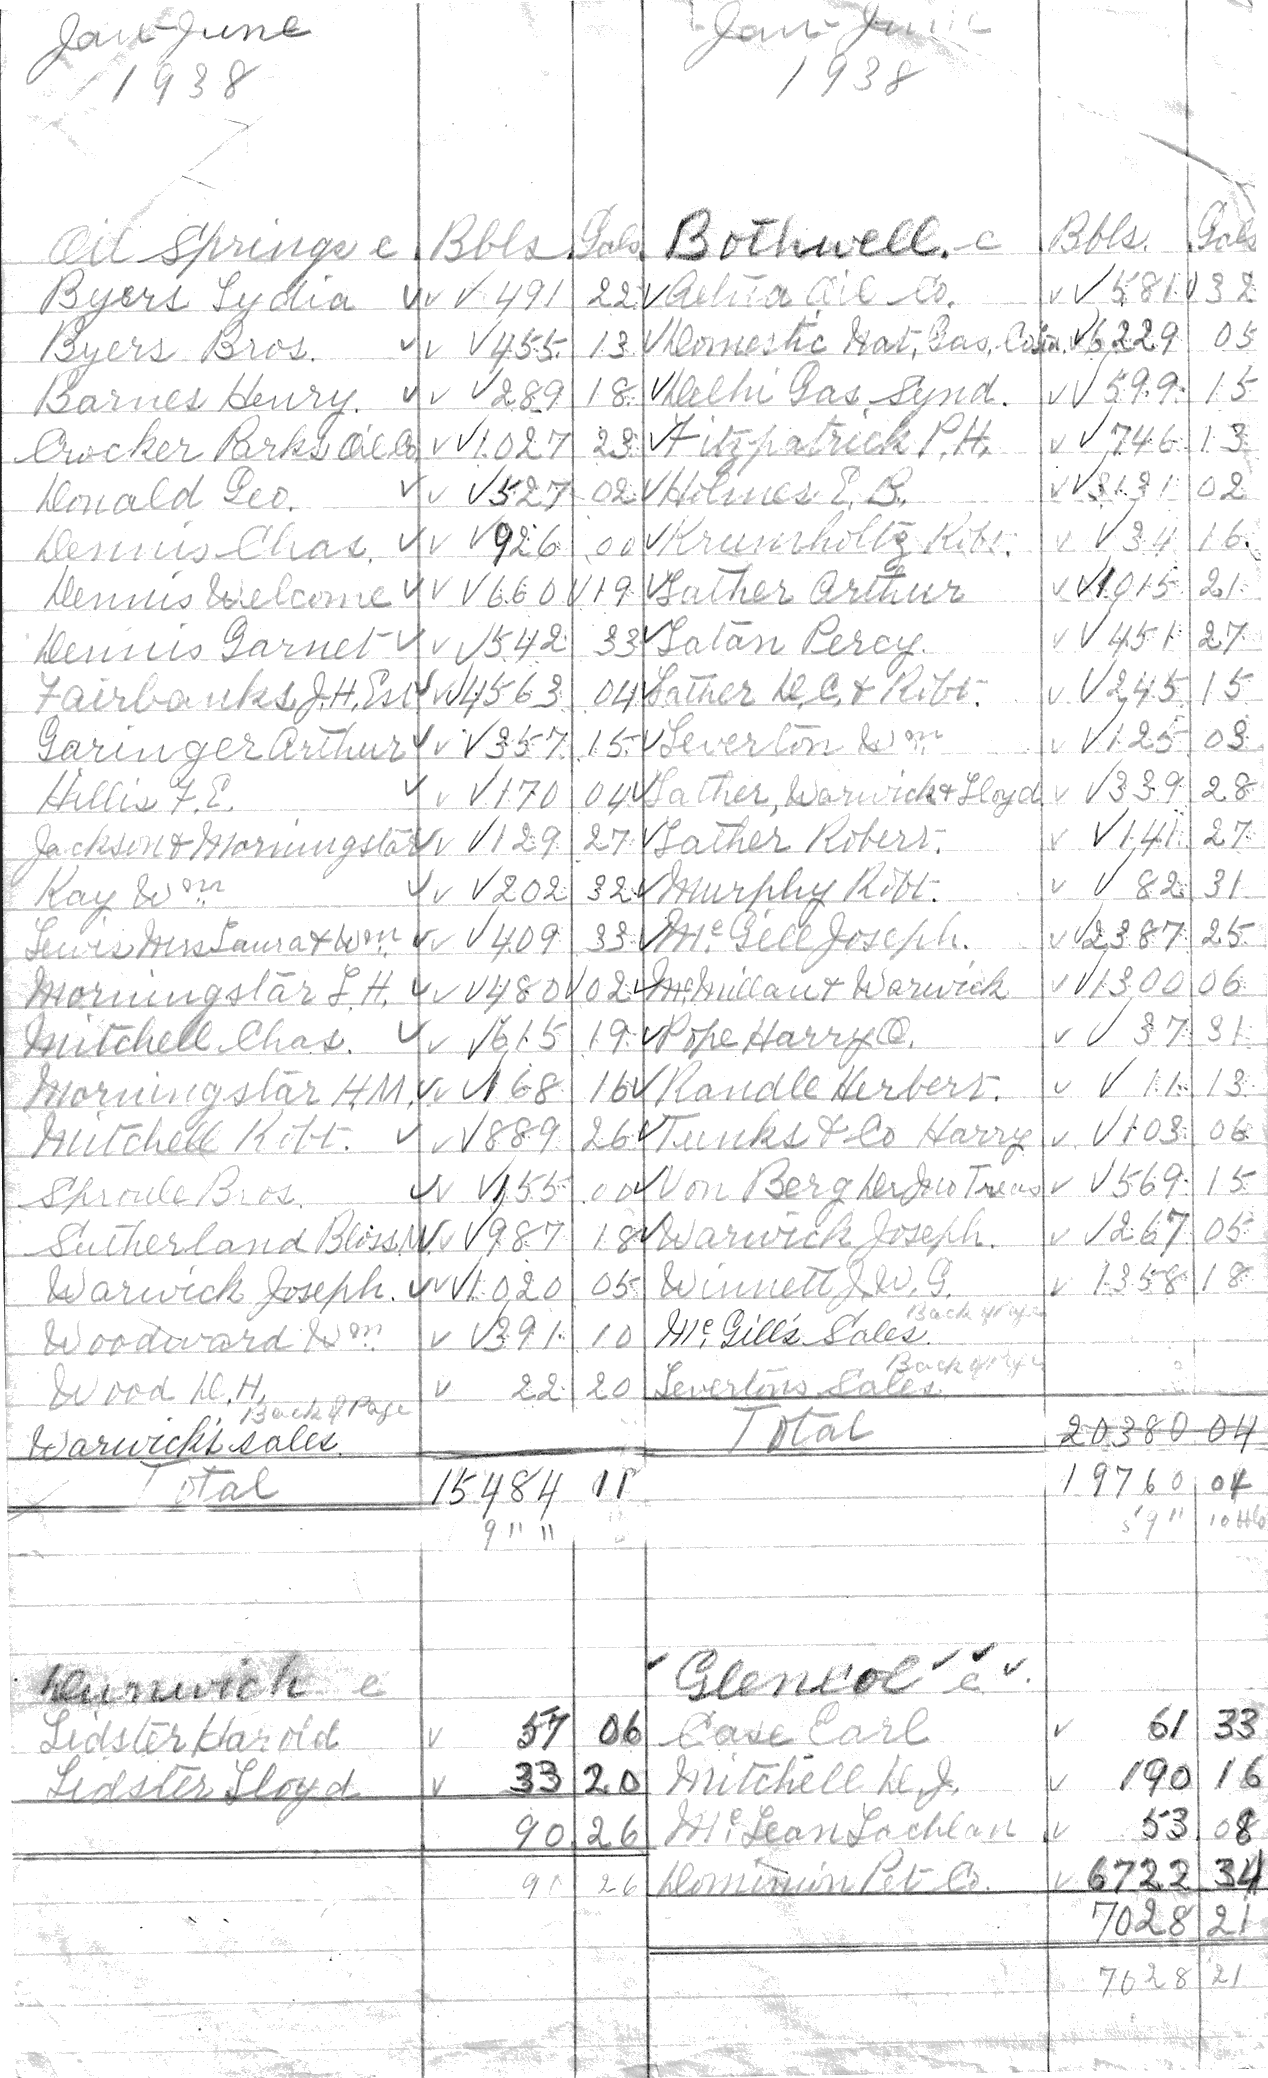 Jan-June
1938
Oil Springs c Bbls Gals
Byers Lydia ✓✓ ✓491 22
Byers Bros. ✓✓ ✓455 13
Barnes Henry. ✓✓ ✓289 18
Crocker Parks Oil Co ✓✓1027 23
Donald Geo. ✓✓ ✓527 02
Dennis Chas. ✓✓ ✓926 00
Dennis Welcome ✓✓ ✓660 ✓19
Dennis Garnet ✓✓ ✓542 33
Fairbanks, J.H. Est ✓✓ ✓4563 04
Garinger Arthur ✓✓ ✓357 15
Hillis F.E. ✓✓ ✓170 04
Jackson & Morningstar ✓✓ ✓129 27
Kay Wm ✓✓ ✓202 32
Lewis Mrs Laura & Wm. ✓✓ ✓409 33
Morningstar L.H. ✓✓ ✓480 ✓02
Mitchell Chas. ✓✓ ✓615 19
Morningstar H.M. ✓✓ ✓168 16
Mitchell Robt. ✓✓ ✓889 26
Sproule Bros. ✓✓ ✓155 00
Sutherland Bliss M. ✓✓ ✓987 18
Warwick Joseph. ✓✓ ✓1020 05
Woodward Wm ✓ ✓391 10
Wood D.H. ✓ 22 20
Back of Page
Warwick's sales.
Total 15484 11
9 " "
Jan-June
1938
Bothwell. c Bbls. Gals
✓Aetna Oil Co. ✓✓581 ✓32
✓Domestic Nat. Gas, Co. ✓6229 05
✓Delhi Gas Synd. ✓✓599 15
✓Fitzpatrick P.H. ✓✓746 13
✓Holmes E.B. ✓✓3131 02
✓Krumholtz Robt. ✓ ✓34 16
✓Lather Arthur ✓✓1015 21
✓Latan Percy. ✓✓451 27
Lather D.C. & Robt. ✓ ✓245 15
✓Leverton Wm ✓ ✓125 03
✓Lather, Warwick & Lloyd ✓ ✓339 28
✓Lather Robert. ✓ ✓141 27
✓Murphy Robt. ✓ ✓ 82 31
✓McGill Joseph. ✓✓2387 25
✓McMillan & Warwick ✓✓1300 06
✓Pope Harry O. ✓ ✓ 37 31
✓Randle Herbert. ✓ ✓ 11 13
✓Tunks & Co Harry ✓ ✓103 06
✓Von Berg Dr Jno Treas ✓ ✓569 15
✓Warwick Joseph. ✓ ✓267 05
Winnett J.W.G. ✓ 1358 18
Back of Page
McGill's Sales.
Back of Page
Leverton's Sales.
Total 20380 04
19760 04
5'9"
Dunwich c
Lidster Harold ✓ 57 06
Lidster Lloyd ✓ 33 20
90 26
91 26
✓ Glencol ✓ ✓ c ✓.
Case Earl ✓ 61 33
Mitchell D.J. ✓ 190 16
McLean Lachlan ✓ 53 08
Dominion Pet. Co. ✓ 6722 34
7028 21
7028 21